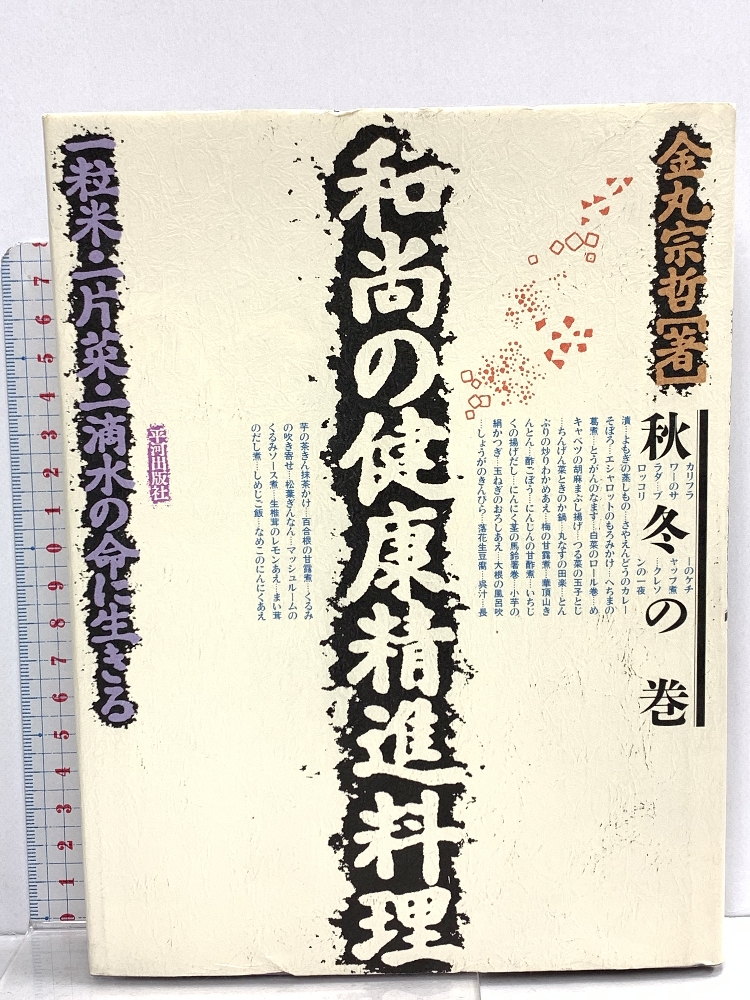 金丸宗哲[著]
秋冬の巻
カリフラワーのサラダ…ブロッコリーのケチャップ煮…クレソンの一夜
漬…よもぎの蒸しもの…さやえんどうのカレー
そぼろ…エシャロットのもろみかけ…へちまの
葛煮…とうがんのなます…白菜のロール巻…め
キャベツの胡麻まぶし揚げ…つる菜の玉子とじ
…ちんげん菜ときのか鍋…丸なすの田楽…とん
ぶりの炒りわかめあえ…梅の甘露煮…華頂山き
んとん…酢ごぼう…にんじんの甘酢煮…いちじ
くの揚げだし…にんにく茎の馬鈴薯巻…小芋の
絹かつぎ…玉ねぎのおろしあえ…大根の風呂吹
…しょうがのきんぴら…落花生豆腐…呉汁…長
芋の茶きん抹茶かけ…百合根の甘露煮…くるみ
の吹き寄せ…松葉ぎんなん…マッシュルームの
くるみソース煮…生椎茸のレモンあえ…まい茸
のだし煮…しめじご飯…なめこのにんにくあえ
和尚の健康精進料理
平河出版社
一粒米・一片菜・一滴水の命に生きる
8
7
6
5
4
3
2
1
10
9
8
7
6
5
4
3
2
1
0